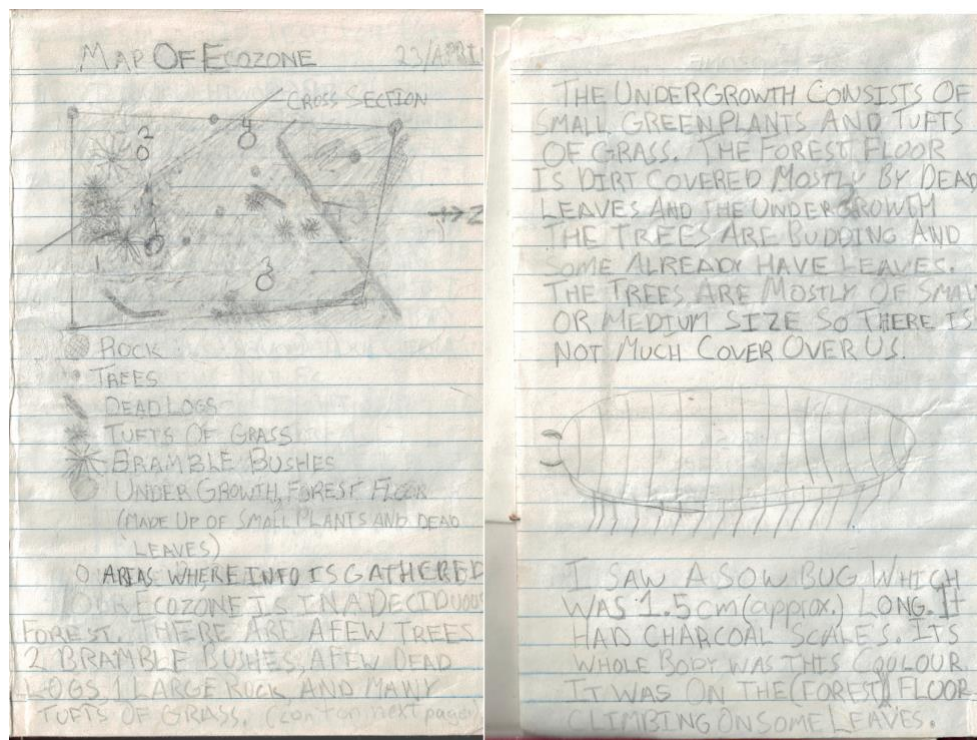 MAP OF ECOZONE 23/APRIL
CROSS SECTION
2
4
1
3
ROCK
TREES
DEAD LOGS
TUFTS OF GRASS
BRAMBLE BUSHES
UNDER GROWTH, FOREST FLOOR
(MADE UP OF SMALL PLANTS AND DEAD
LEAVES)
AREAS WHERE INFO IS GATHERED
OUR ECOZONE IS IN A DECIDUOUS
FOREST. THERE ARE A FEW TREES
2 BRAMBLE BUSHES, A FEW DEAD
LOGS, 1 LARGE ROCK, AND MANY
TUFTS OF GRASS. (con't on next page)
THE UNDERGROWTH CONSISTS OF
SMALL GREEN PLANTS AND TUFTS
OF GRASS. THE FOREST FLOOR
IS DIRT COVERED MOSTLY BY DEAD
LEAVES AND THE UNDERGROWTH
THE TREES ARE BUDDING AND
SOME ALREADY HAVE LEAVES.
THE TREES ARE MOSTLY OF SMALL
OR MEDIUM SIZE SO THERE IS
NOT MUCH COVER OVER US.
I SAW A SOW BUG WHICH
WAS 1.5cm (approx.) LONG. It
HAD CHARCOAL SCALES. ITS
WHOLE BODY WAS THIS COOLOUR.
IT WAS ON THE (FOREST) FLOOR
CLIMBING ON SOME LEAVES.